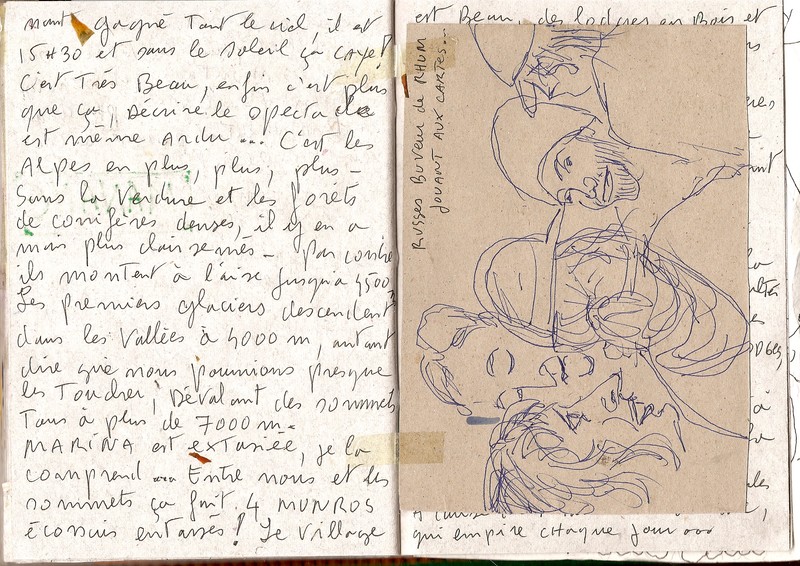 gagné Tout le ciel, il est
15H30 et sans le Soleil ça CAYE!
C'est Très Beau, enfin c'est plus
que ça, Décrire le spectacle
est même Ardu... C'est les
Alpes en plus, plus, plus -
Sans la Verdure et les forêts
de conifères denses, il y en a
mais plus clairsemés - par contre
ils montent à l'aise jusqu'à 4500
Les premiers glaciers descendent
dans les Vallées à 4000 m, autant
dire que nous pourrions presque
les Toucher, Dévalant des sommets
Tous à plus de 7000 m -
MARINA est extasiée, je la
comprend ... Entre nous et les
sommets ça fait 4 MUNROS
écossais entassés! Le Village
est Beau, des loDges en Bois et
RUSSES BUVEUR DE RHUM
JOUANT AUX CARTES...
la
à
qui empire chaque jour ...